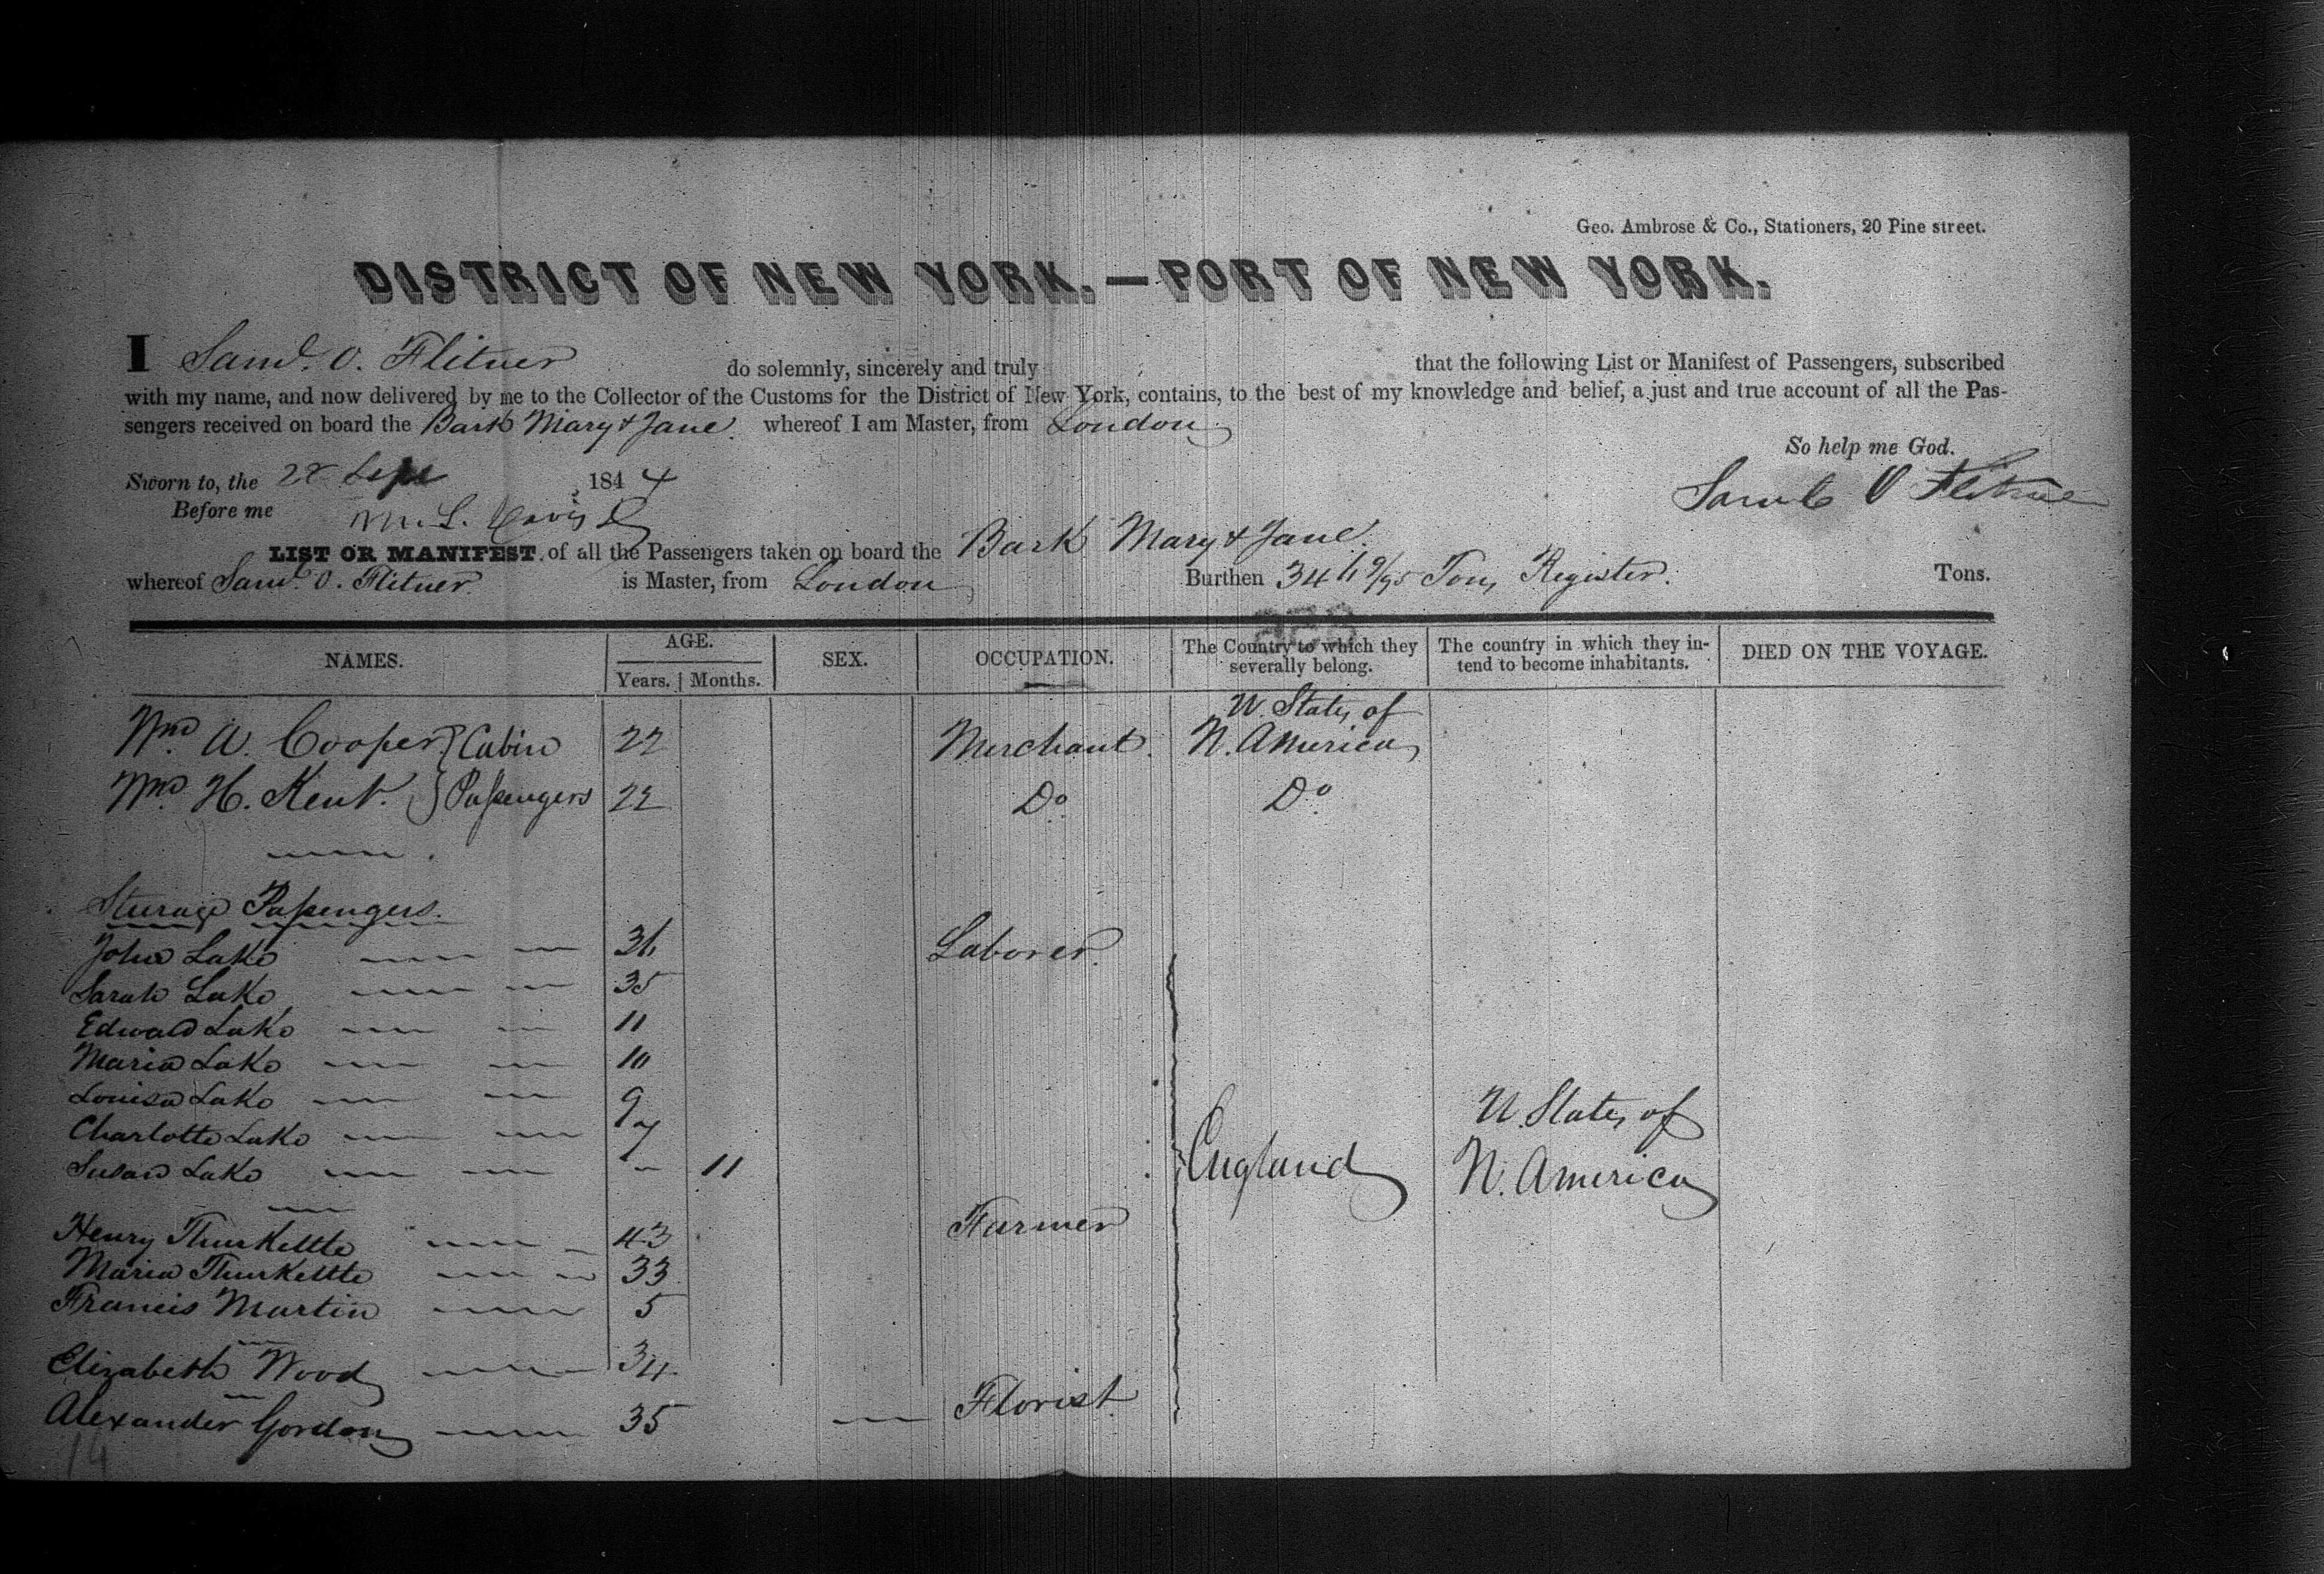 Geo. Ambrose & Co., Stationers, 20 Pine street.
DISTRICT OF NEW YORK.—PORT OF NEW YORK.
I Saml. O. Flitner do solemnly, sincerely and truly that the following List or Manifest of Passengers, subscribed
with my name, and now delivered by me to the Collector of the Customs for the District of New York, contains, to the best of my knowledge and belief, a just and true account of all the Pas-
sengers received on board the Bark Mary & Jane. whereof I am Master, from London
So help me God.
Sworn to, the 28 Sept , 1844
Saml O Flitner
Before me M. L. Davis
LIST OR MANIFEST of all the Passengers taken on board the Bark Mary & Jane.
whereof Saml. O. Flitner. is Master, from London Burthen Tons Register. Tons.
NAMES. AGE. SEX. OCCUPATION. The Country to which they severally belong. The country in which they in-tend to become inhabitants. DIED ON THE VOYAGE.
Years. Months.
Wm. A. Cooper. } Cabin 22 Merchant. U. States of N. America
Wm. H. Kent. } Passengers 22 Do. Do.
Sturage Passengers.
John Lake 36 Laborer.
Sarah Lake 35
Edward Lake 11
Maria Lake 10
Louisa Lake 9
Charlotte Lake 7
Susan Lake 11
England U. States of N. America
Henry Thurkettle 43 Farmer
Maria Thurkettle 33
Francis Martin 5
Elizabeth Wood 34
Alexander Gordon 35 Florist
14